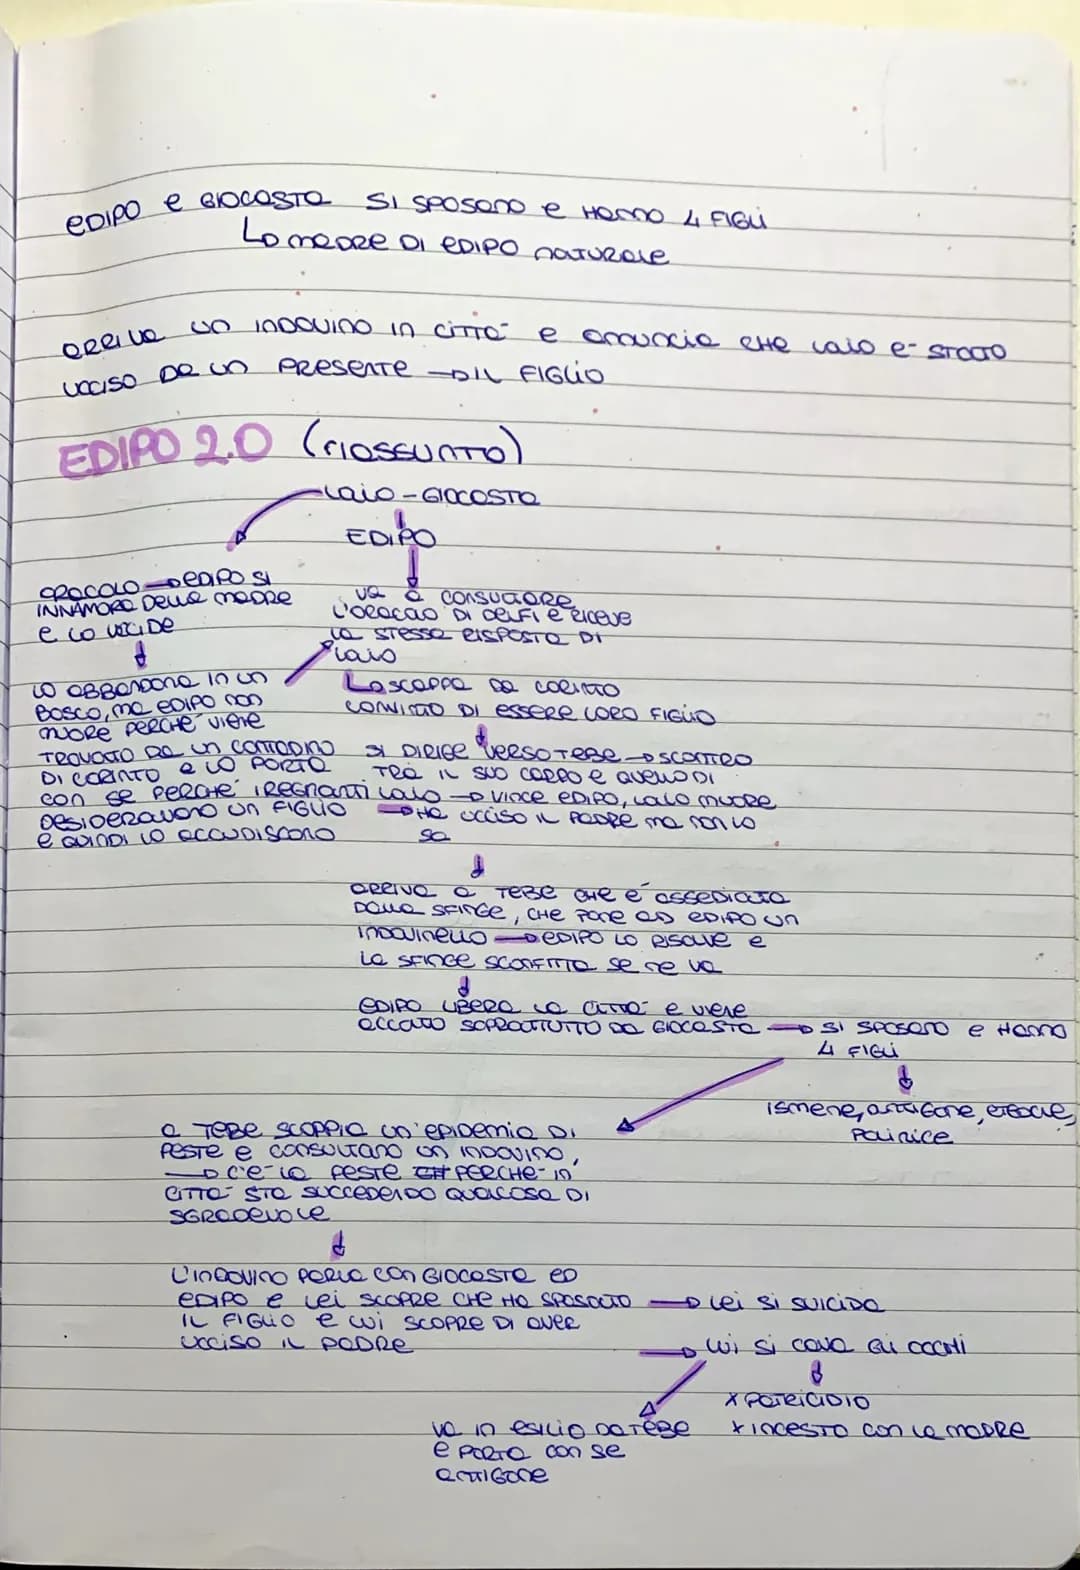 EDIPO e GIOCASTA SI SPOSANO e HANNO 4 FIGLI
LA MADRE DI EDIPO NATURALE
ARRIVA UN INDOVINO IN CITTÀ e ANNUNCIA CHE LAIO È STATO
UCCISO DA UN PRESENTE → IL FIGLIO
EDIPO 2.0 (RIASSUNTO)
LAIO - GIOCASTA
EDIPO
ORACOLO → EDIPO SI
INNAMORA DELLA MADRE
e LO UCCIDE
↓
LO ABBANDONA IN UN
BOSCO, MA EDIPO NON
MUORE PERCHÉ VIENE
TROVATO DA UN CONTADINO
DI CORINTO e LO PORTA
CON SE PERCHÉ I REGNANTI
DESIDERAVANO UN FIGLIO
E QUINDI LO ACCUDISCONO
VA A CONSULTARE
L'ORACOLO DI DELFI E RICEVE
LA STESSA RISPOSTA DI
LAIO
↳ SCAPPA DA CORINTO
CONVINTO DI ESSERE LORO FIGLIO
↓
SI DIRIGE VERSO TEBE → SCONTRO
TRA IL SUO CARRO E QUELLO DI
LAIO → VINCE EDIPO, LAIO MUORE
→ HA UCCISO IL PADRE MA NON LO
SA
↓
ARRIVA A TEBE CHE È ASSEDIATA
DALLA SFINGE, CHE PONE AD EDIPO UN
INDOVINELLO → EDIPO LO RISOLVE E
LA SFINGE SCONFITTA SE NE VA
↓
EDIPO LIBERA LA CITTÀ E VIENE
ACCOLTO SOPRATTUTTO DA GIOCASTA → SI SPOSANO E HANNO
4 FIGLI
↓
ISMENE, ANTIGONE, ETEOCLE,
POLINICE
A TEBE SCOPPIA UN'EPIDEMIA DI
PESTE E CONSULTANO UN INDOVINO,
→ C'È LA PESTE PERCHÉ IN
CITTÀ STA SUCCEDENDO QUALCOSA DI
SGRADEVOLE
↓
L'INDOVINO PARLA CON GIOCASTA ED
EDIPO E LEI SCOPRE CHE HA SPOSATO → LEI SI SUICIDA
IL FIGLIO E LUI SCOPRE DI AVER
UCCISO IL PADRE
→ LUI SI CAVA GLI OCCHI
↓
X PATRICIDIO
X INCESTO CON LA MADRE
VA IN ESILIO DA TEBE
E PORTA CON SE
ANTIGONE